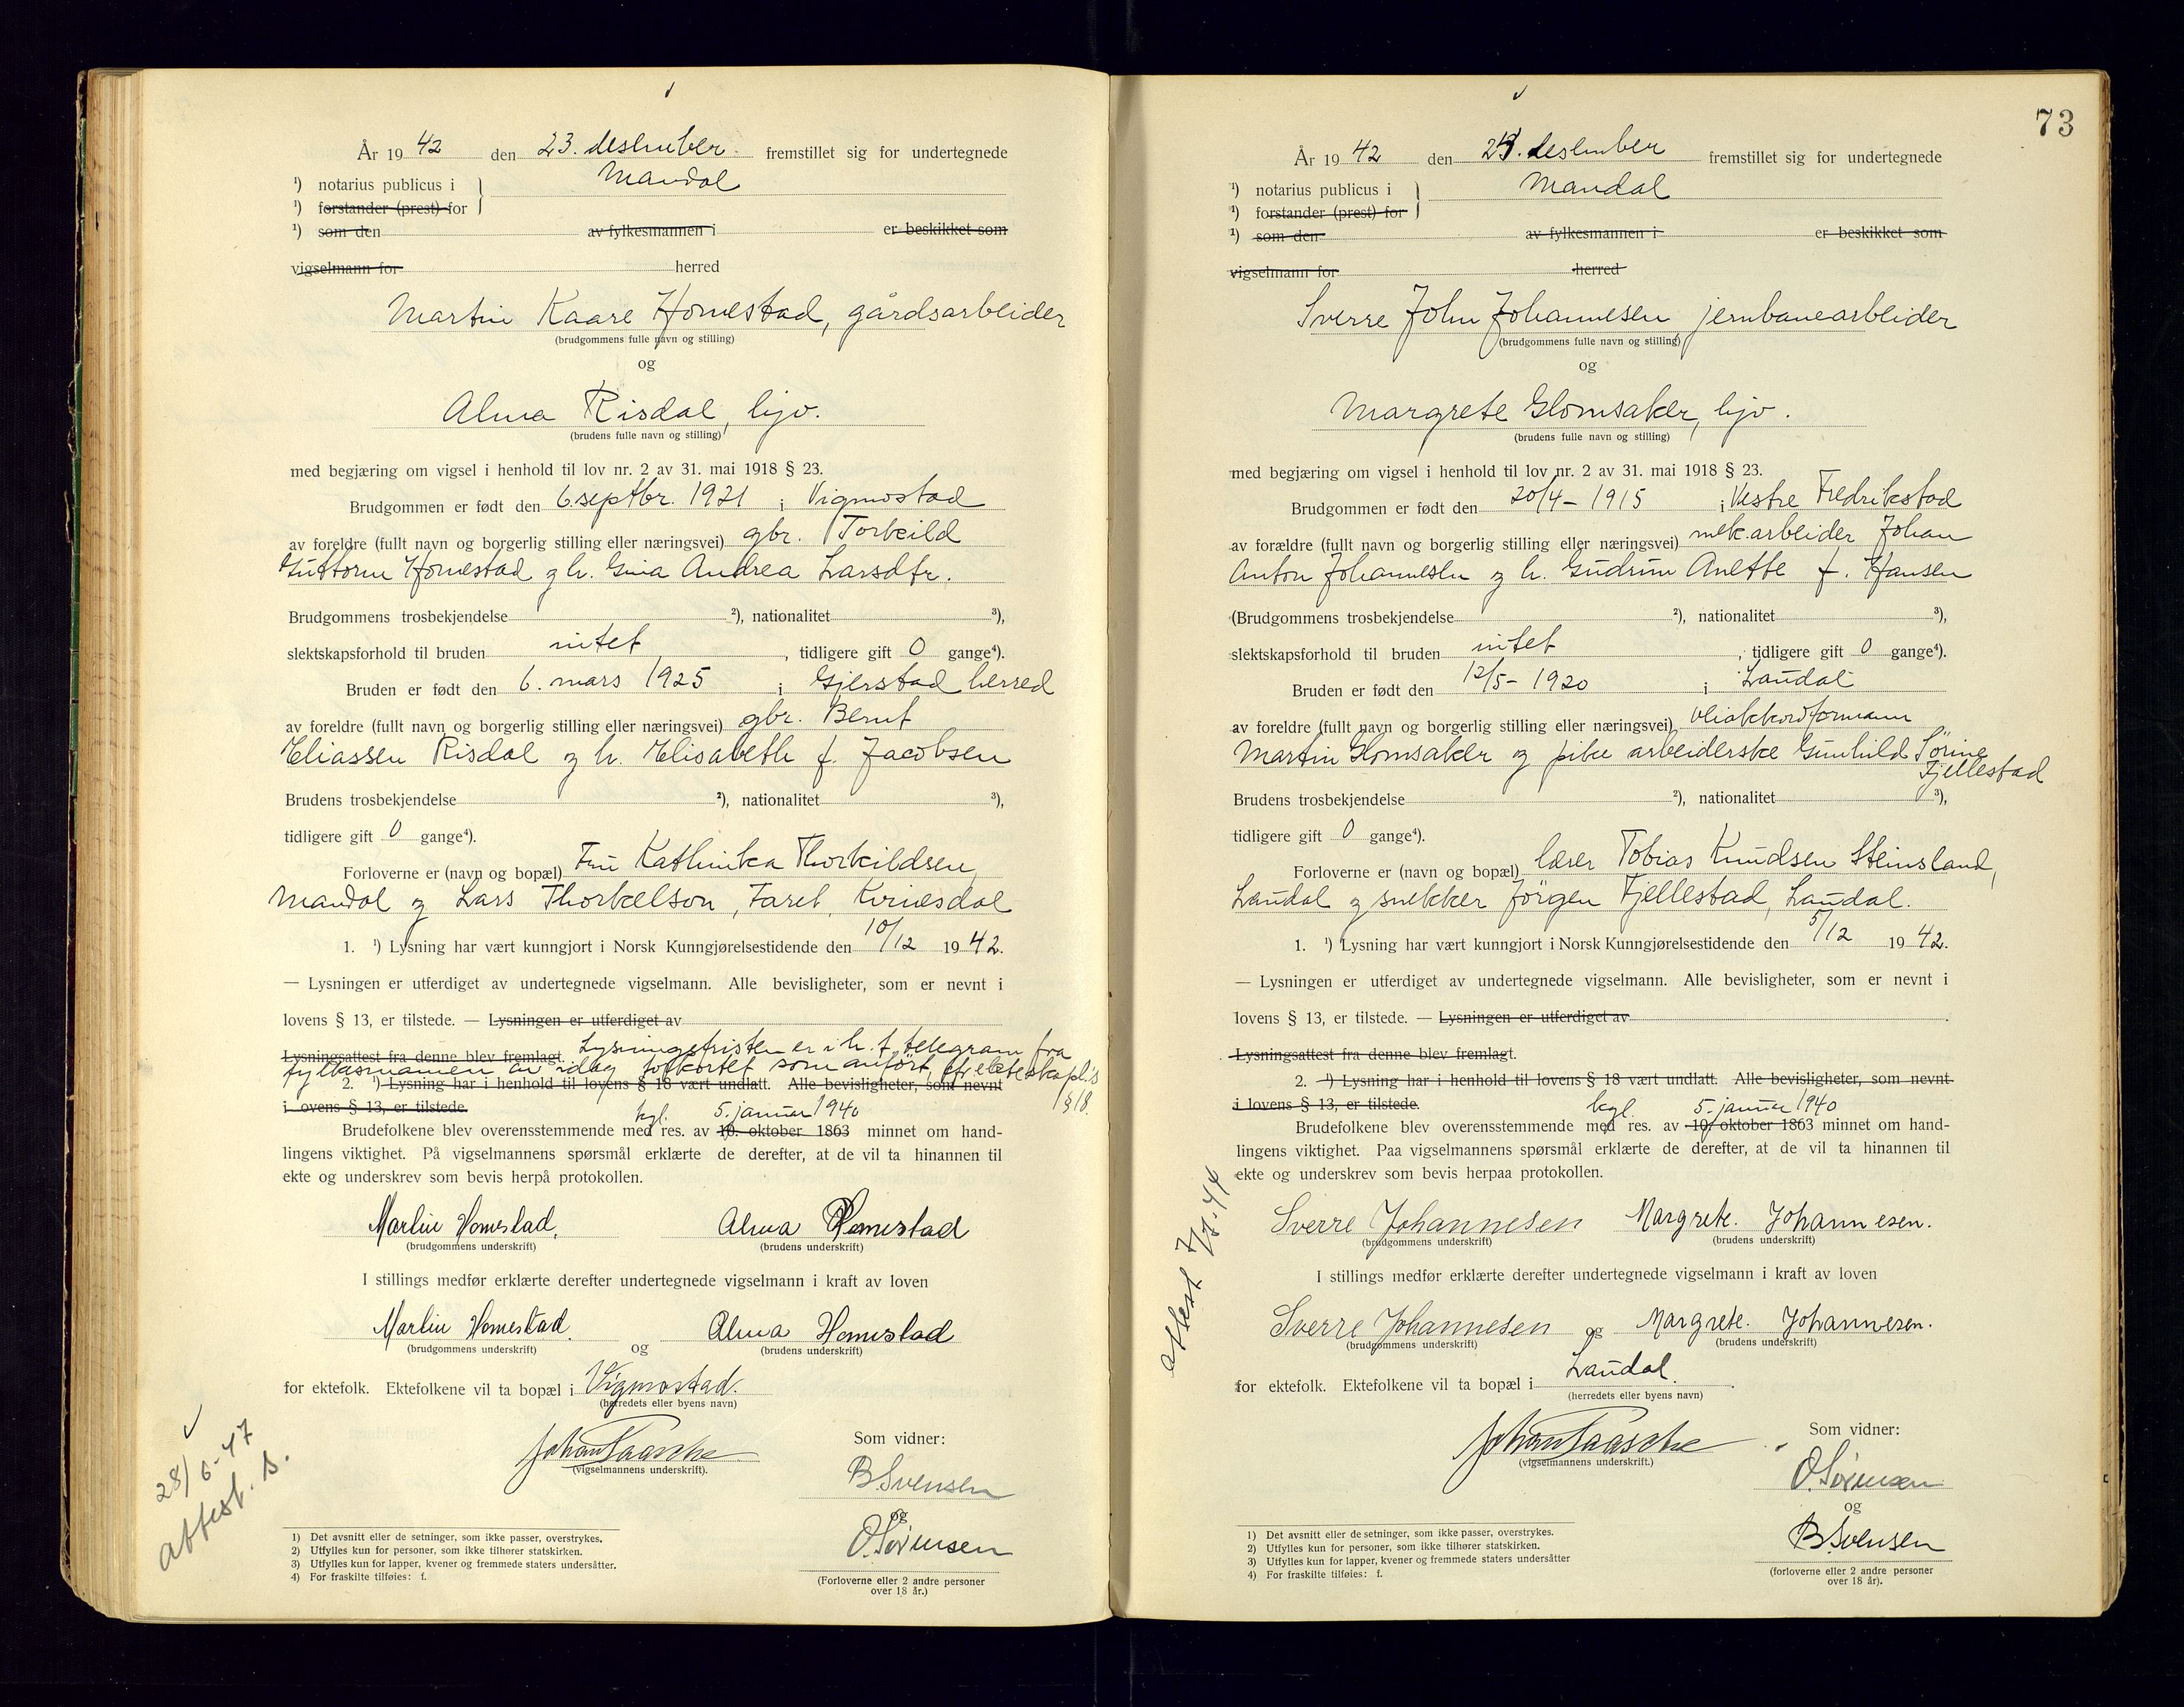 År 1942 den 23. desember fremstillet sig for undertegnede
¹) notarius publicus i Mandal
¹) forstander (prest) for
¹) som den av fylkesmannen i er beskikket som
vigselmann for herred
Martin Kaare Homestad, gårdsarbeider
(brudgommens fulle navn og stilling)
og
Alma Risdal, hjv.
(brudens fulle navn og stilling)
med begjæring om vigsel i henhold til lov nr. 2 av 31. mai 1918 § 23.
Brudgommen er født den 6. septbr. 1921 i Vigmostad
av foreldre (fullt navn og borgerlig stilling eller næringsvei) gbr. Torkild
Guttorm Homestad og h. Gina Andrea Larsdtr.
Brudgommens trosbekjendelse ²), nationalitet ³),
slektskapsforhold til bruden intet, tidligere gift 0 gange⁴).
Bruden er født den 6. mars 1925 i Gjerstad herred
av foreldre (fullt navn og borgerlig stilling eller næringsvei) gbr. Bernt
Eliassen Risdal og h. Elisabeth f. Jacobsen
Brudens trosbekjendelse ²), nationalitet ³),
tidligere gift 0 gange⁴).
Forloverne er (navn og bopæl) Fru Kathinka Thorkildsen,
Mandal og Lars Thorkelson, Faret, Kvinesdal
1. ¹) Lysning har vært kunngjort i Norsk Kunngjørelsestidende den 10/12 1942.
— Lysningen er utferdiget av undertegnede vigselmann. Alle bevisligheter, som er nevnt i
lovens § 13, er tilstede. — Lysningen er utferdiget av
Lysningsattest fra denne blev fremlagt. Lysningsfristen er i h. t. telegram fra
fylkesmannen av idag forkortet som anført, cfr. ekteskapsl.s
§ 18.
2. ¹) Lysning har i henhold til lovens § 18 vært undlatt. Alle bevisligheter, som nevnt
i lovens § 13, er tilstede.
kgl. 5. januar 1940
Brudefolkene blev overensstemmende med res. av 10. oktober 1863 minnet om hand-
lingens viktighet. På vigselmannens spørsmål erklærte de derefter, at de vil ta hinannen til
ekte og underskrev som bevis herpå protokollen.
Martin Homestad. Alma Homestad
(brudgommens underskrift) (brudens underskrift)
I stillings medfør erklærte derefter undertegnede vigselmann i kraft av loven
Martin Homestad. Alma Homestad
(brudgommens underskrift) og (brudens underskrift)
for ektefolk. Ektefolkene vil ta bopæl i Vigmostad.
(herredets eller byens navn)
Johan Paasche
(vigselmannens underskrift).
Som vidner:
B. Svensen
og
O. Sørensen
(Forloverne eller 2 andre personer
over 18 år.)
28/6-47
attest. s.
1) Det avsnitt eller de setninger, som ikke passer, overstrykes.
2) Utfylles kun for personer, som ikke tilhører statskirken.
3) Utfylles kun for lapper, kvener og fremmede staters undersåtter.
4) For fraskilte tilføies: f.
73
År 1942 den desember fremstillet sig for undertegnede
¹) notarius publicus i Mandal
¹) forstander (prest) for
¹) som den av fylkesmannen i er beskikket som
vigselmann for herred
Sverre John Johannesen, jernbanearbeider
(brudgommens fulle navn og stilling)
og
Margrete Glomsaker, hjv.
(brudens fulle navn og stilling)
med begjæring om vigsel i henhold til lov nr. 2 av 31. mai 1918 § 23.
Brudgommen er født den 20/4 - 1915 i Vestre Fredrikstad
av forældre (fullt navn og borgerlig stilling eller næringsvei) mek.arbeider Johan
Anton Johannesen og h. Gudrun Anette f. Hansen
(Brudgommens trosbekjendelse ²), nationalitet ³),
slektskapsforhold til bruden intet, tidligere gift 0 gange⁴).
Bruden er født den 12/5 - 1920 i Laudal
av foreldre (fullt navn og borgerlig stilling eller næringsvei) veiakkordformann
Martin Glomsaker og pike arbeiderske Gunhild Sørine
Fjellestad
Brudens trosbekjendelse ²), nationalitet ³),
tidligere gift 0 gange⁴).
Forloverne er (navn og bopæl) lærer Tobias Knudsen Steinsland,
Laudal og snekker Jörgen Fjellestad, Laudal.
1. ¹) Lysning har vært kunngjort i Norsk Kunngjørelsestidende den 5/12 1942.
— Lysningen er utferdiget av undertegnede vigselmann. Alle bevisligheter, som er nevnt i
lovens § 13, er tilstede. — Lysningen er utferdiget av .
Lysningsattest fra denne blev fremlagt.
2. ¹) Lysning har i henhold til lovens § 18 vært undlatt. Alle bevisligheter, som nevnt
i lovens § 13, er tilstede.
kgl. 5. januar 1940
Brudefolkene blev overensstemmende med res. av 10. oktober 1863 minnet om hand-
lingens viktighet. Paa vigselmannens spørsmål erklærte de derefter, at de vil ta hinannen til
ekte og underskrev som bevis herpaa protokollen.
Sverre Johannesen Margrete. Johannesen.
(brudgommens underskrift) (brudens underskrift)
I stillings medfør erklærte derefter undertegnede vigselmann i kraft av loven
Sverre Johannesen og Margrete. Johannesen.
(brudgommens underskrift) (brudens underskrift)
for ektefolk. Ektefolkene vil ta bopæl i Laudal.
(herredets eller byens navn)
Johan Paasche
(vigselmannens underskrift.)
Som vidner:
O. Sørensen
og
B. Svensen
(forloverne eller 2 andre personer
over 18 år).
attest
1) Det avsnitt eller de setninger, som ikke passer, overstrykes.
2) Utfylles kun for personer, som ikke tilhører statskirken.
3) Utfylles kun for lapper, kvener og fremmede staters undersåtter
4) For fraskilte tilføies: f.